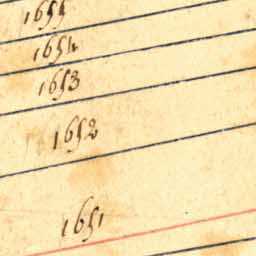 1655
1654
1653
1652
1651